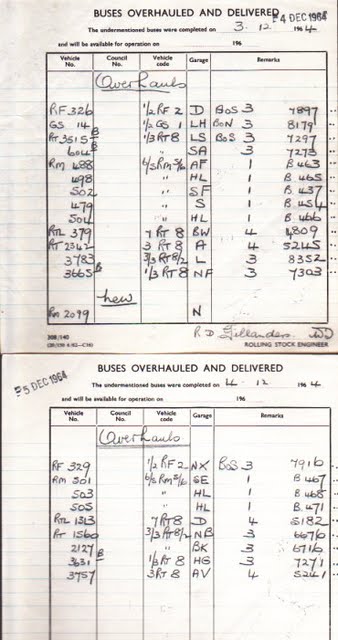 BUSES OVERHAULED AND DELIVERED 4 DEC 1964
The undermentioned buses were completed on 3. 12 196 4
and will be available for operation on 196
Vehicle No. Council No. Vehicle code Garage Remarks
Overhauls
RF 326 1/2 RF 2 D BOS 3 7897
GS 14 1/2 GS 1 LH BON 3 8179
RT 3515 B 1/3 RT 8 LS BOS 3 7297
604 B " SA 3 7273
RM 488 6/5 RM 5/6 AF 1 B 463
498 " HL 1 B 465
502 " SF 1 B 437
479 " S 1 B 454
504 " HL 1 B 466
RTL 379 7 RT 8 BW 4 4809
RT 2342 3 RT 8 A 4 5245
3783 3/3 RT 8/2 L 3 8352
3665 B 1/3 RT 8 NF 3 7303
New
RM 2099 N
R. D. Gillanders.
308/140 ROLLING STOCK ENGINEER
BUSES OVERHAULED AND DELIVERED
5 DEC 1964
The undermentioned buses were completed on 4. 12 196 4
and will be available for operation on 196
Vehicle No. Council No. Vehicle code Garage Remarks
Overhauls
RF 329 1/2 RF 2 NX BOS 3 7916
RM 501 6/5 RM 5/6 SE 1 B 467
503 " HL 1 B 468
505 " HL 1 B 471
RTL 1313 7 RT 8 D 4 5182
RT 1560 3/3 RT 8/2 NB 3 6676
2127 " BK 3 6716
3631 B 1/3 RT 8 HG 3 7271
3757 3 RT 8 AV 4 5241